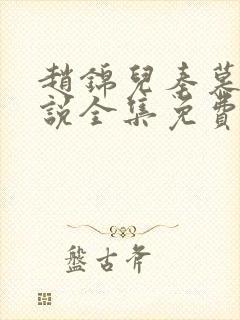 趙錦兒秦慕
說全集免費
盤古斧